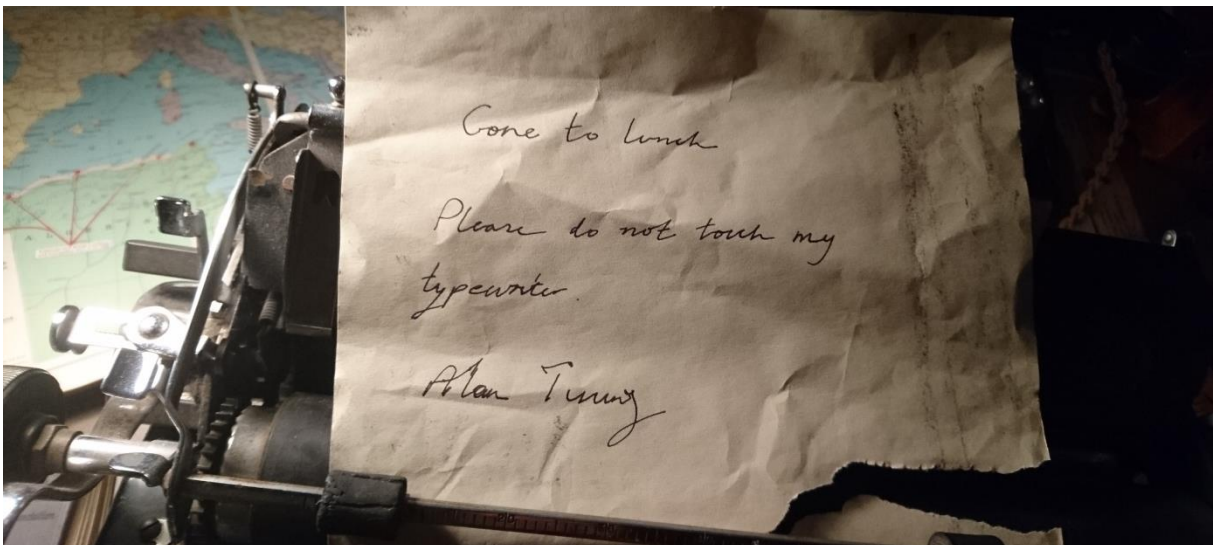 Gone to lunch
Please do not touch my
typewriter.
Alan Turing